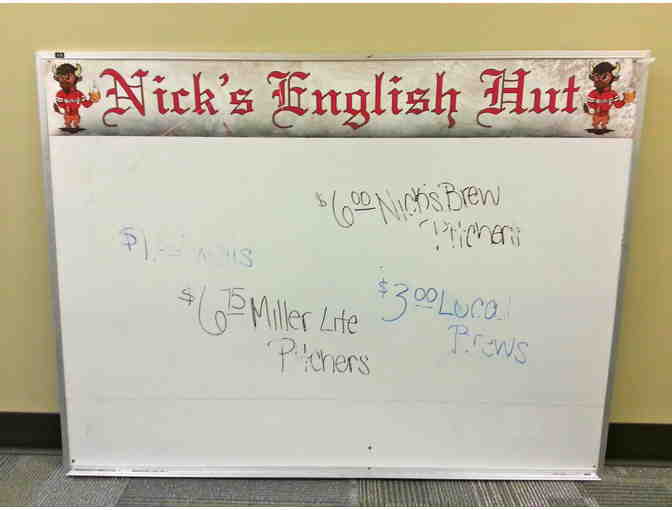 Nick's English Hut
$6.00 Nick's Brew
Pitchers
$6.75 Miller Lite
Pitchers
$3.00 Local
Brews